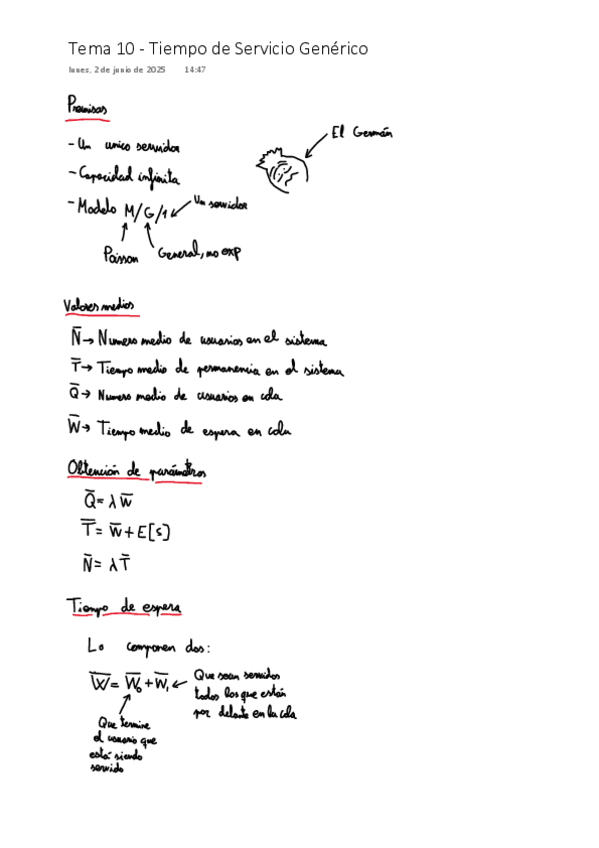 Tema 10 - Tiempo de Servicio Genérico
lunes, 2 de junio de 2025 14:47
Premisas
- Un unico servidor
El Germán
- Capacidad infinita
- Modelo M/G/1
Un servidor
Poisson
General, no exp
Valores medios
N̄ → Numero medio de usuarios en el sistema
T̄ → Tiempo medio de permanencia en el sistema
Q̄ → Numero medio de usuarios en cola
W̄ → Tiempo medio de espera en cola
Obtención de parámetros
Q̄ = λ W̄
T̄ = W̄ + E[s]
N̄ = λ T̄
Tiempo de espera
Lo componen dos:
W̄ = W̄₀ + W̄₁
Que sean servidos
todos los que están
por delante en la cola
Que termine
el usuario que
está siendo
servido